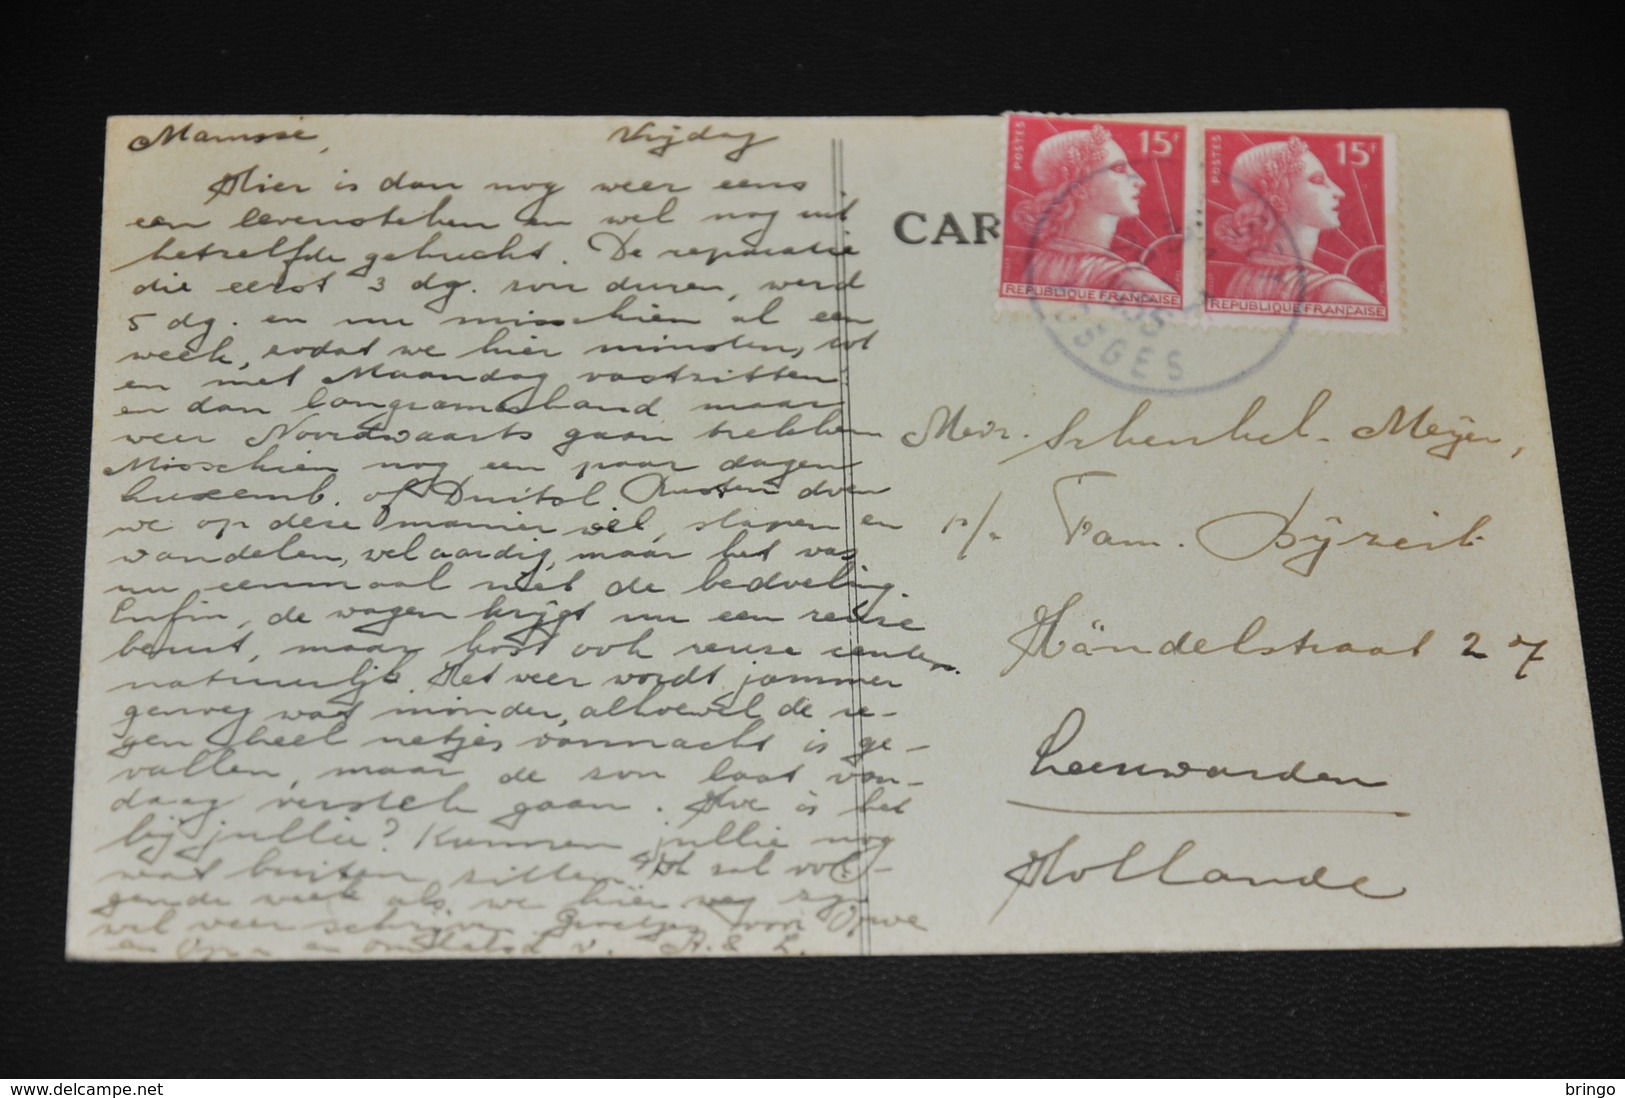 Mamsie, Vrijdag
Hier is dan nog weer eens
een levensteken en wel nog uit
hetzelfde gehucht. De reparatie
die eerst 3 dg. zou duren, werd
5 dg. en nu misschien al een
week, zodat we hier minstens tot
en met Maandag vastzitten
en dan langzamerhand maar
weer Noordwaarts gaan trekken
Misschien nog een paar dagen
Luxemb. of Duitsl. Rusten doen
we op deze manier wel, slapen en
wandelen, wel aardig, maar het was
nu eenmaal niet de bedoeling
Enfin, de wagen krijgt nu een
beurt, maar kost ook centen
natuurlijk. Het weer wordt jammer
genoeg wat minder, alhoewel de re-
gen heel netjes vannacht is ge-
vallen, maar de zon laat van-
daag verstek gaan. Hoe is het
bij jullie? Kunnen jullie nog
wat buiten zitten? Ik zal vol-
gende week als we hier weg zijn
wel weer schrijven. Groetjes voor
en Opa en v. A. & L.
CAR
POSTES 15F
REPUBLIQUE FRANÇAISE
POSTES 15F
REPUBLIQUE FRANÇAISE
VOSGES
Mevr. Schenkel-Meijer,
p/a Fam. Dijzeil
Händelstraat 27
Leeuwarden
Hollande
www.delcampe.net
bringo